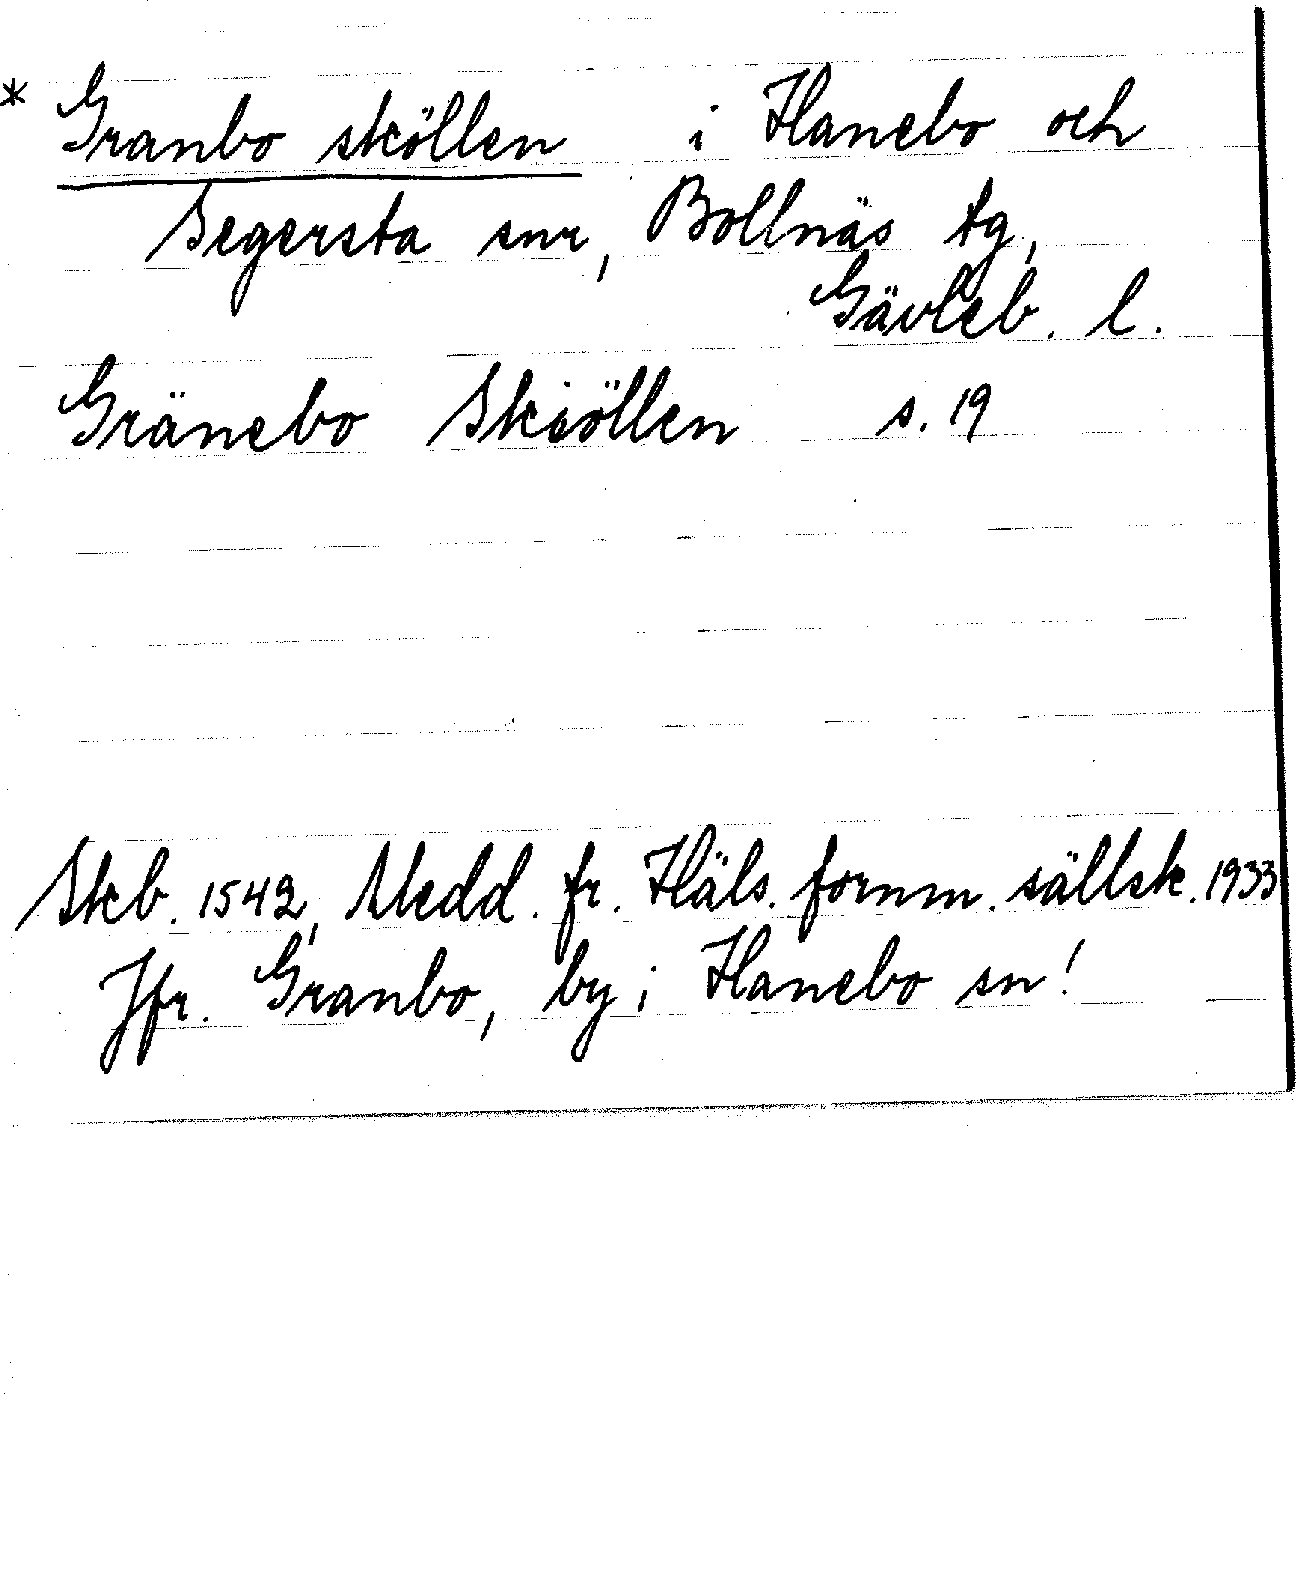 * Granbo sköllen i Hanebo och
Segersta snr, Bollnäs tg,
Gävleb. l.
Gränebo Skiöllen s. 19
Skb. 1542, Medd. fr. Häls. fornm. sällsk. 1933
Jfr. Granbo, by i Hanebo sn!